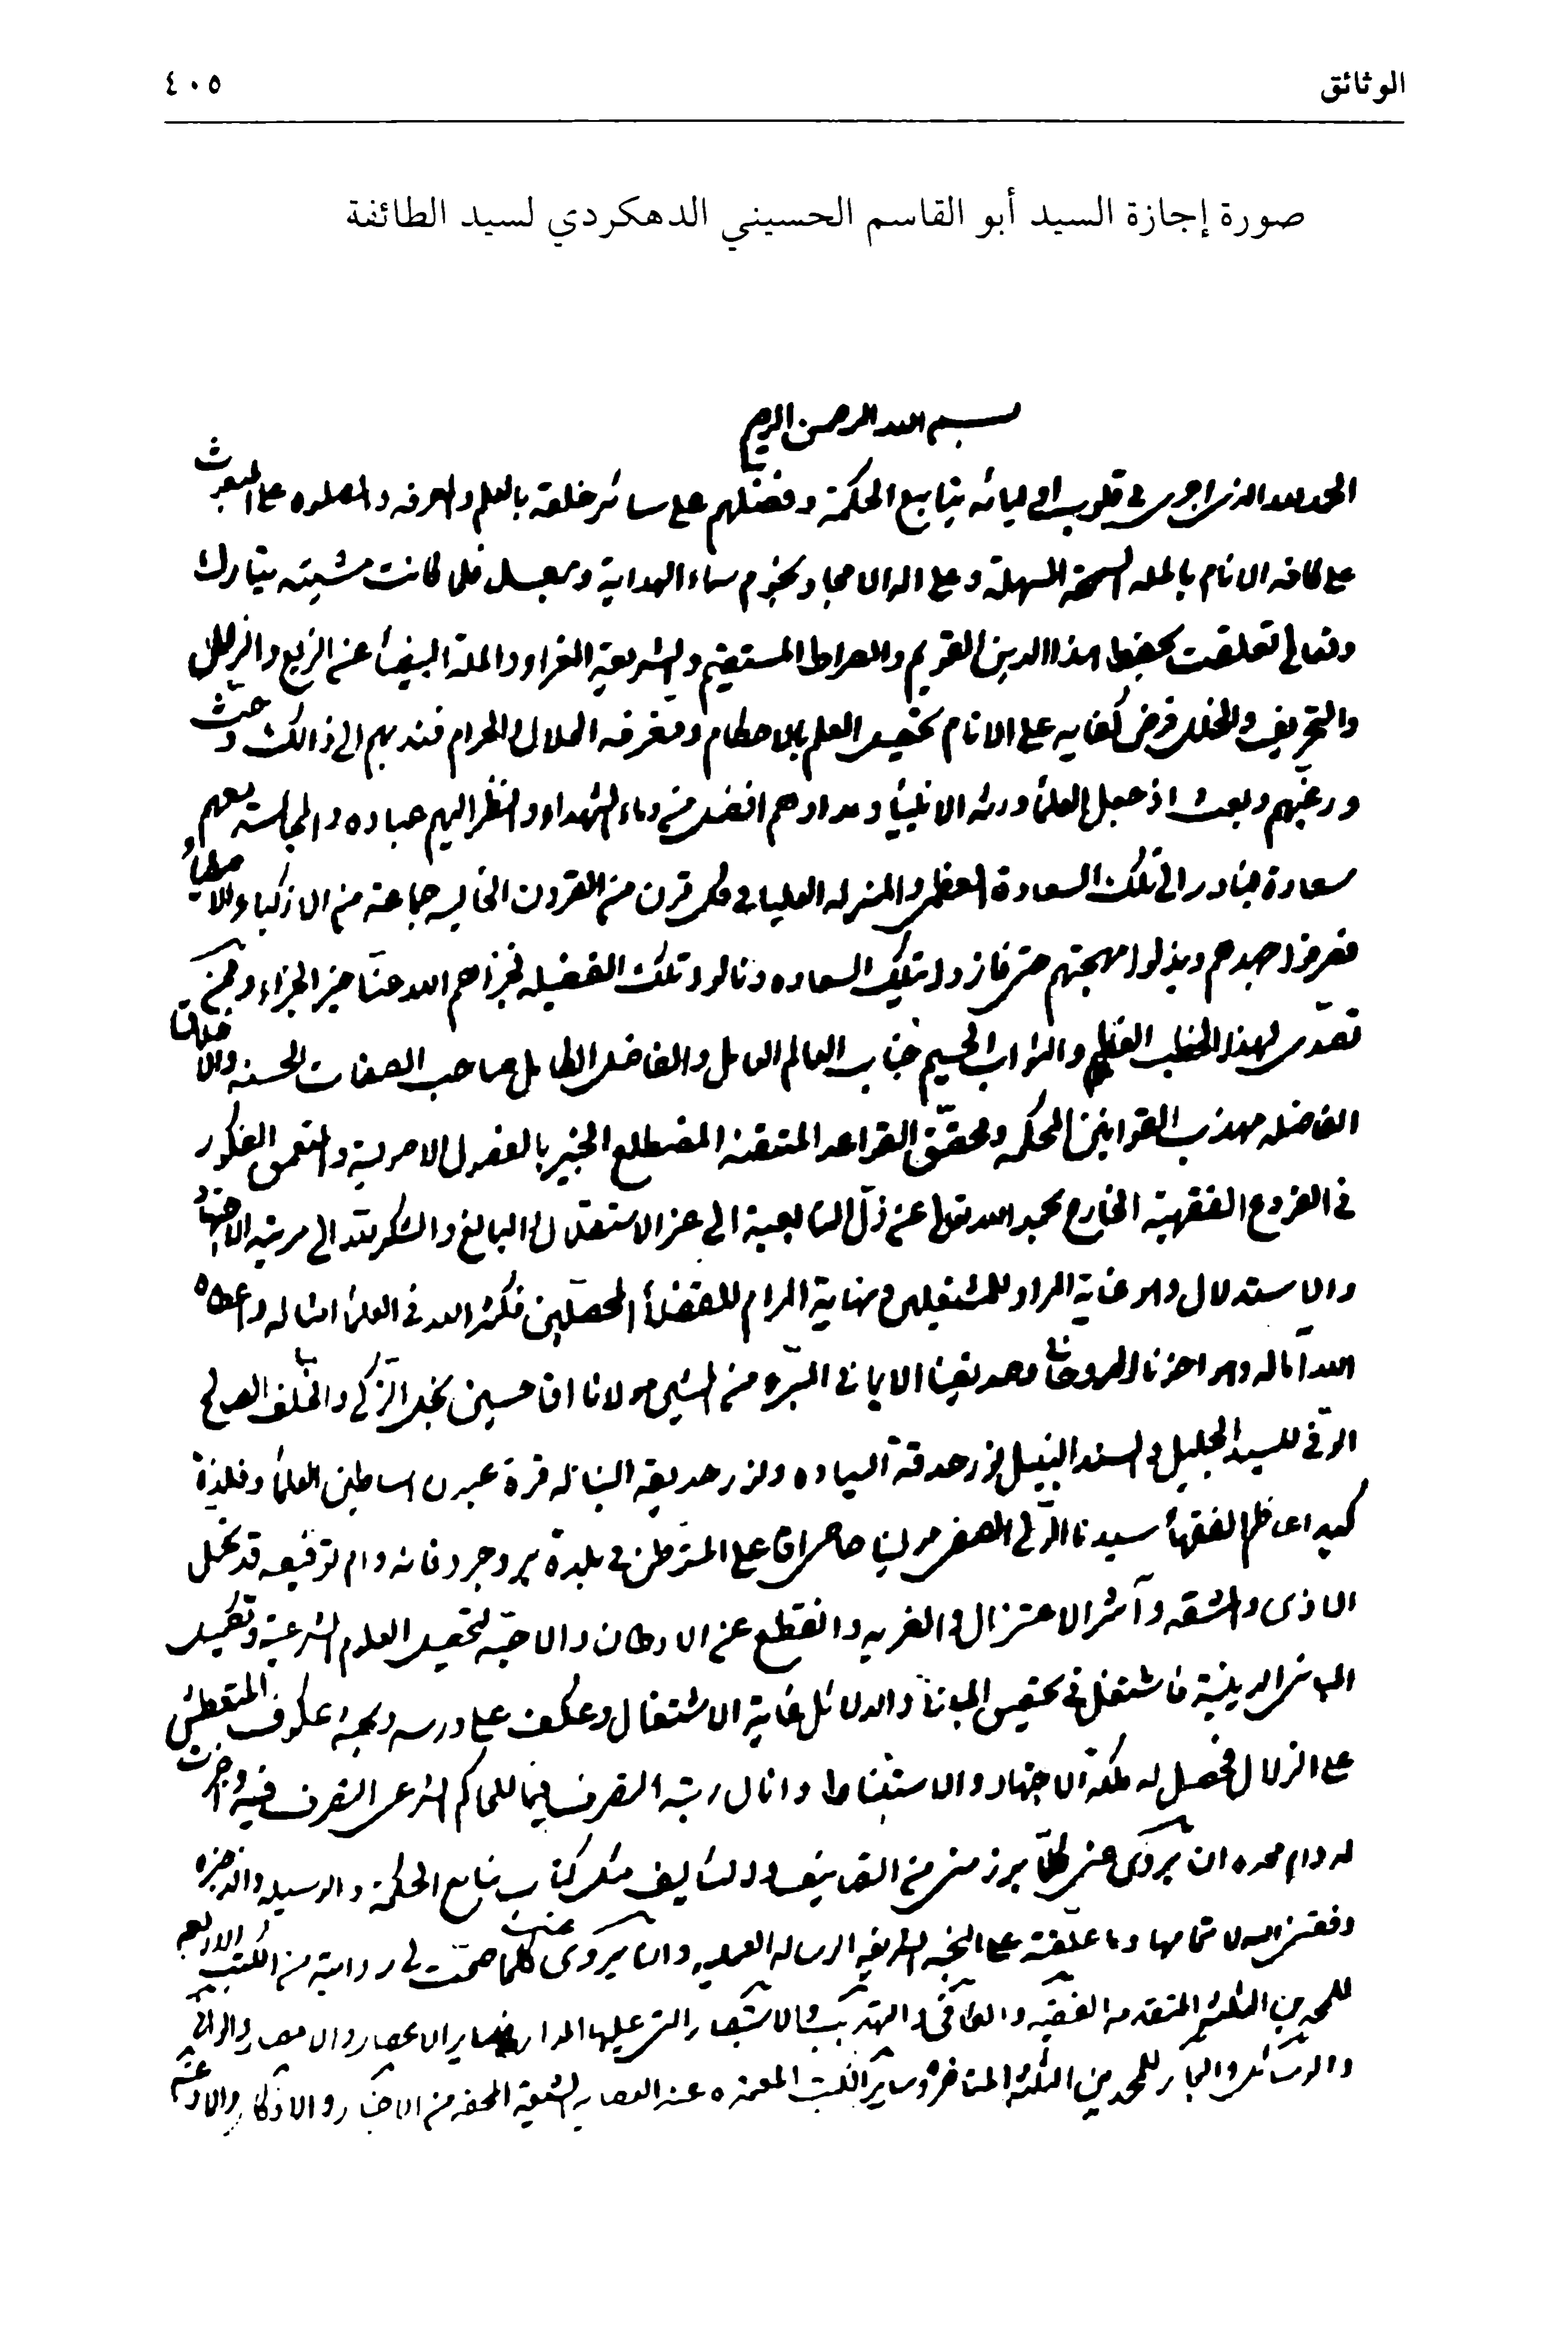 الوثائق
٤٠٥
صورة إجازة السيد أبو القاسم الحسيني الدهكردي لسيد الطائفة
بسم الله الرحمن الرحيم
الحمد لله الذي اجرى في قلوب اوليائه ينابيع الحكمة وفضلهم على سائر خلقه بالعلم والمعرفه والصلوه على المبعوث
على كافه الانام بالمله السمحة السهلة وعلى اله الامجاد نجوم سماء الهداية وبعد فلما كانت مشيته تبارك
وتعالى تعلقت بحفظ هذا الدين القويم والصراط المستقيم والشريعة الغراء والملة البيضاء عن الزيغ والزلل
والتحريف والخلل فرض كفايه على الانام تحصيل العلم بالاحكام ومعرفه الحلال والحرام فندبهم الى ذالك وحث
ورغبهم وبعث اذ جعل العلماء ورثه الانبياء ومدادهم افضل من دماء الشهداء والنظر اليهم عباده والمجالسة معهم
سعادة فبادر الى تلك السعادة العظمى والمنزله العليا في كل قرن من القرون الخاليه جماعة من الازكياء والا
فصرفوا جهدهم وبذلوا مهجتهم حتى فازوا بتلك السعاده ونالوا تلك الفضيله فجزاهم الله عنا خير الجزاء وممن
تصدى لهذا الخطب العظيم والثواب الجسيم جناب العالم العامل والفاضل الكامل صاحب الصفات الحسنه والاخلاق
الفاضله مهذب القوانين المحكمه ومحقق القواعد المتقنه المضطلع الخبير بالفصول الاصولية والمتعمق الفكور
في الفروع الفقهية الخارج بحمد الله تعالى عن ذل التابعية الى عز الاستقلال البالغ والشكر لله الى مرتبه الاجتهاد
والاستدلال وهو غاية المراد للمشتغلين ونهاية المرام للفضلاء المحصلين فكثر الله في العلماء امثاله واعطاه
الله آماله وهو اخونا الروحاني وصديقنا الايماني المبرء من الشين مولانا اقا حسين نجل الزكي والخلف الصالح
الوفي للسيد الجليل والسند النبيل نور حدقة السياده ونور حديقه النباله قرة عيون اساطين العلماء وفلذة
كبد اعاظم الفقهاء سيدنا الولي الصفي مولينا حاجى اقا على المتوطن في بلدة بروجرد فانه دام توفيقه قد تحمل
الاذى والمشقه وآثر الاعتزال والغربه وانقطع عن الاوطان والاحبة لتحصيل العلوم الشرعية وتكميل
المباني الدينية فاشتغل في تحقيق المباني والدلائل غاية الاشتغال وعكف على درسه وبحثه عكوف المتعطش
على الزلال فحصل له ملكة الاجتهاد والاستنباط ونال رتبة التصرف فيما للحاكم الشرعي التصرف فيه واجزت
له دام مجده ان يروى عني كلما برز مني من التصانيف والتاليف مثل كتاب ينابيع الحكمة والوسيله والذخيره
وفقني الله لاتمامها وما علقته على النخبه الشريفه الرساله العمليه وان يروى عني كلما صحت لي روايته من الكتب الاربعه
للمحمدين الثلثة المتقدمه الفقيه والكافي والتهذيب والاستبصار التي عليها المدار في ساير الاعصار والامصار والوافي
والوسائل والبحار للمحمدين الثلثة المتاخرة وساير الكتب المعتمده عند العصابه الشيعة المحقه من الاخبار والاذكار والادعيه